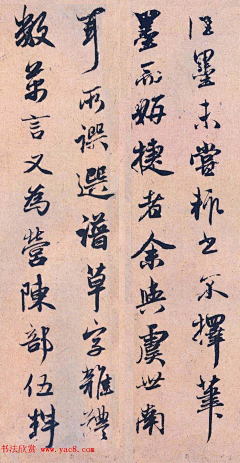 佳墨未嘗輒書不擇筆
墨而妍捷者余與虞世南
耳所譔選譜草字雜體
數萬言又為營陳部伍料
书法欣赏 www.yac8.com